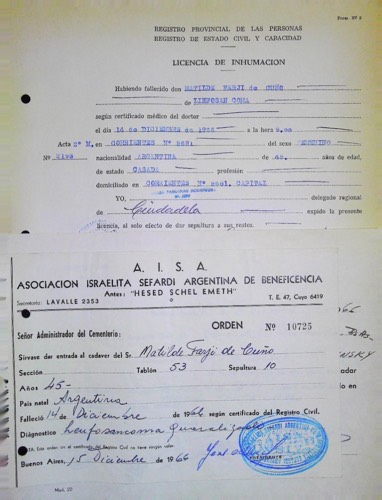 Form. Nº 9
REGISTRO PROVINCIAL DE LAS PERSONAS
REGISTRO DE ESTADO CIVIL Y CAPACIDAD
LICENCIA DE INHUMACION
Habiendo fallecido don MATILDE FARJI de CUÑO
de LINFOSAN COMA
según certificado médico del doctor
el día 14 de DICIEMBRE de 1966 a la hora
Acta 2ª M, en CORRIENTES Nº del sexo FEMENINO
Nº nacionalidad ARGENTINA de años de edad,
de estado CASADA profesión
domiciliado en CORRIENTES Nº CAPITAL
YO, delegado regional
de Ciudadela expido la presente
licencia, al solo efecto de dar sepultura a sus restos.
A. I. S. A.
ASOCIACION ISRAELITA SEFARDI ARGENTINA DE BENEFICENCIA
Antes: "HESED SCHEL EMETH"
Secretaría: LAVALLE 2353 T. E. 47, Cuyo 6419
ORDEN Nº 10725
Señor Administrador del Cementerio:
Sírvase dar entrada al cadaver del Sr. Matilde Farji de Cuño
Sección Tablón 53 Sepultura 10
Años 45-
País natal Argentina
Falleció 14 de Diciembre de 1966 según certificado del Registro Civil.
Diagnóstico
NOTA: Esta orden sin el certificado del Registro Civil no tiene ningún valor.
Buenos Aires, 15 Diciembre de 1966
PRESIDENTE
Mod. /22